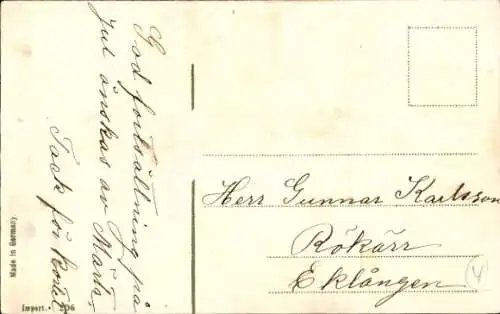 God fortsättning på
Jul önskas av Märta,
Tack för kortet
Herr Gunnar Karlsson
Rökärr
Eklången
4
Made in Germany
Import.